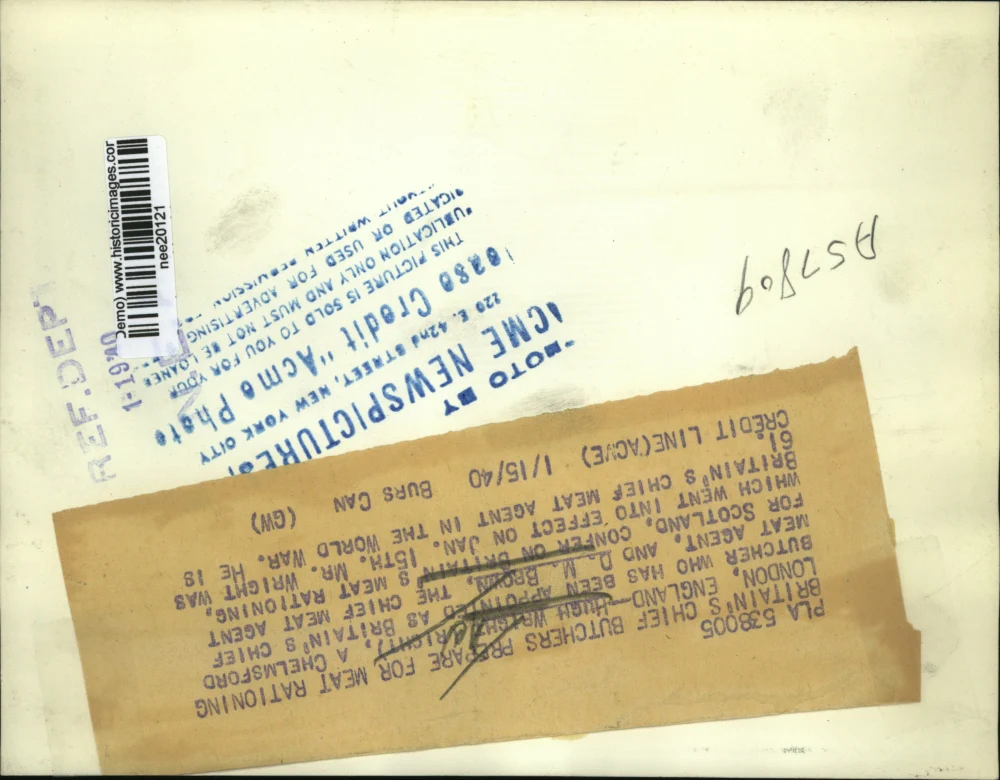 Demo) www.historicimages.cor
nee20121
REF.DEPT
1-19'40
A57809
"HOTO BY
ACME NEWSPICTURES,
220 E. 42nd STREET, NEW YORK CITY
Credit "Acme Photo
THIS PICTURE IS SOLD TO YOU FOR YOUR
PUBLICATION ONLY AND MUST NOT BE LOANED
OR USED FOR ADVERTISING
WRITTEN PERMISSION
PLA 538005
BRITAIN'S CHIEF BUTCHERS PREPARE FOR MEAT RATIONING
LONDON, ENGLAND--HUGH WRIGHT(RIGHT), A CHELMSFORD
BUTCHER WHO HAS BEEN APPOINTED AS BRITAIN'S CHIEF
MEAT AGENT, AND D. M. BROWN, THE CHIEF MEAT AGENT
FOR SCOTLAND, CONFER ON BRITAIN'S MEAT RATIONING,
WHICH WENT INTO EFFECT ON JAN. 15TH. MR. WRIGHT WAS
BRITAIN'S CHIEF MEAT AGENT IN THE WORLD WAR. HE IS
61.
CREDIT LINE(ACME) 1/15/40 BURS CAN (GW)